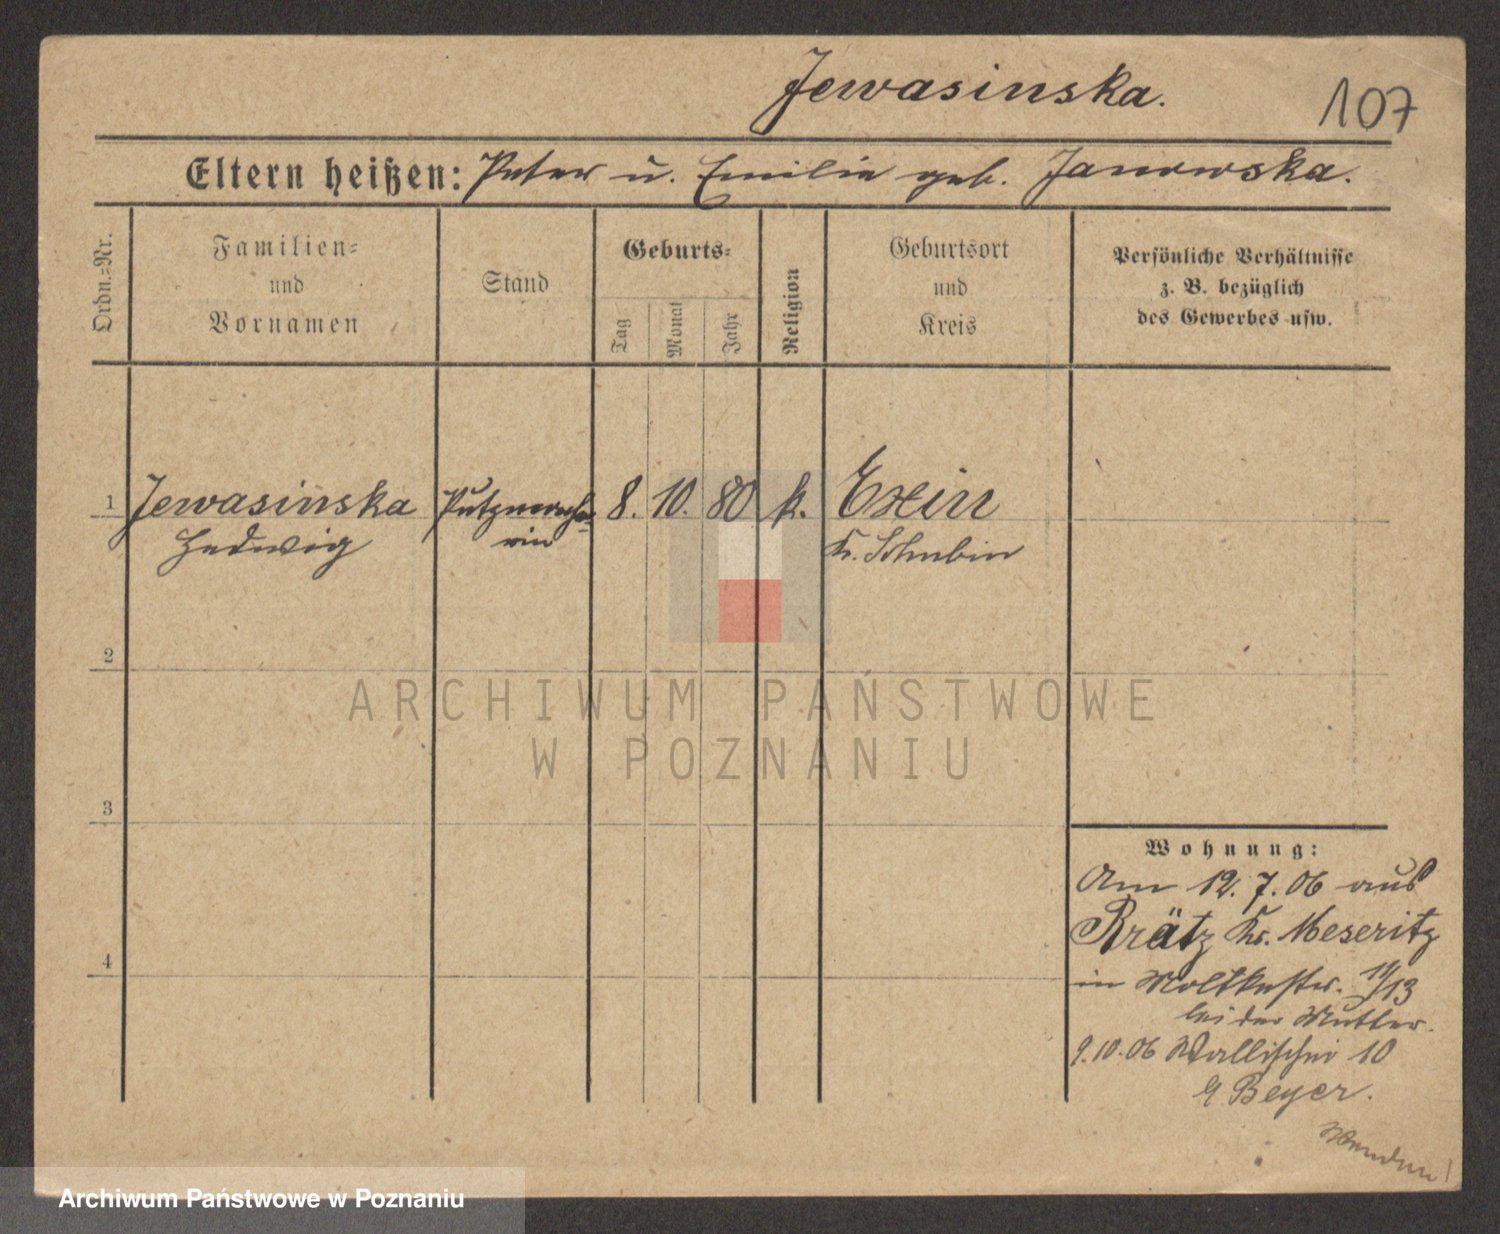 Jewasinska.
107
Eltern heißen: Peter u. Emilie geb. Janowska.
Ordn.-Nr.
Familien-
und
Vornamen
Stand
Geburts-
Tag
Monat
Jahr
Religion
Geburtsort
und
Kreis
Persönliche Verhältnisse
z. B. bezüglich
des Gewerbes usw.
1 Jewasinska Putzmache- 8. 10. 80 k. Exin
Hedwig rin Kr. Schubin
2
ARCHIWUM PAŃSTWOWE
W POZNANIU
3
Wohnung:
Am 12. 7. 06 aus
Brätz Kr. Meseritz
4
in Moltkestr. 11/13
bei der Mutter.
9.10.06 Wallischei 10
Beyer.
Wenden!
Archiwum Państwowe w Poznaniu